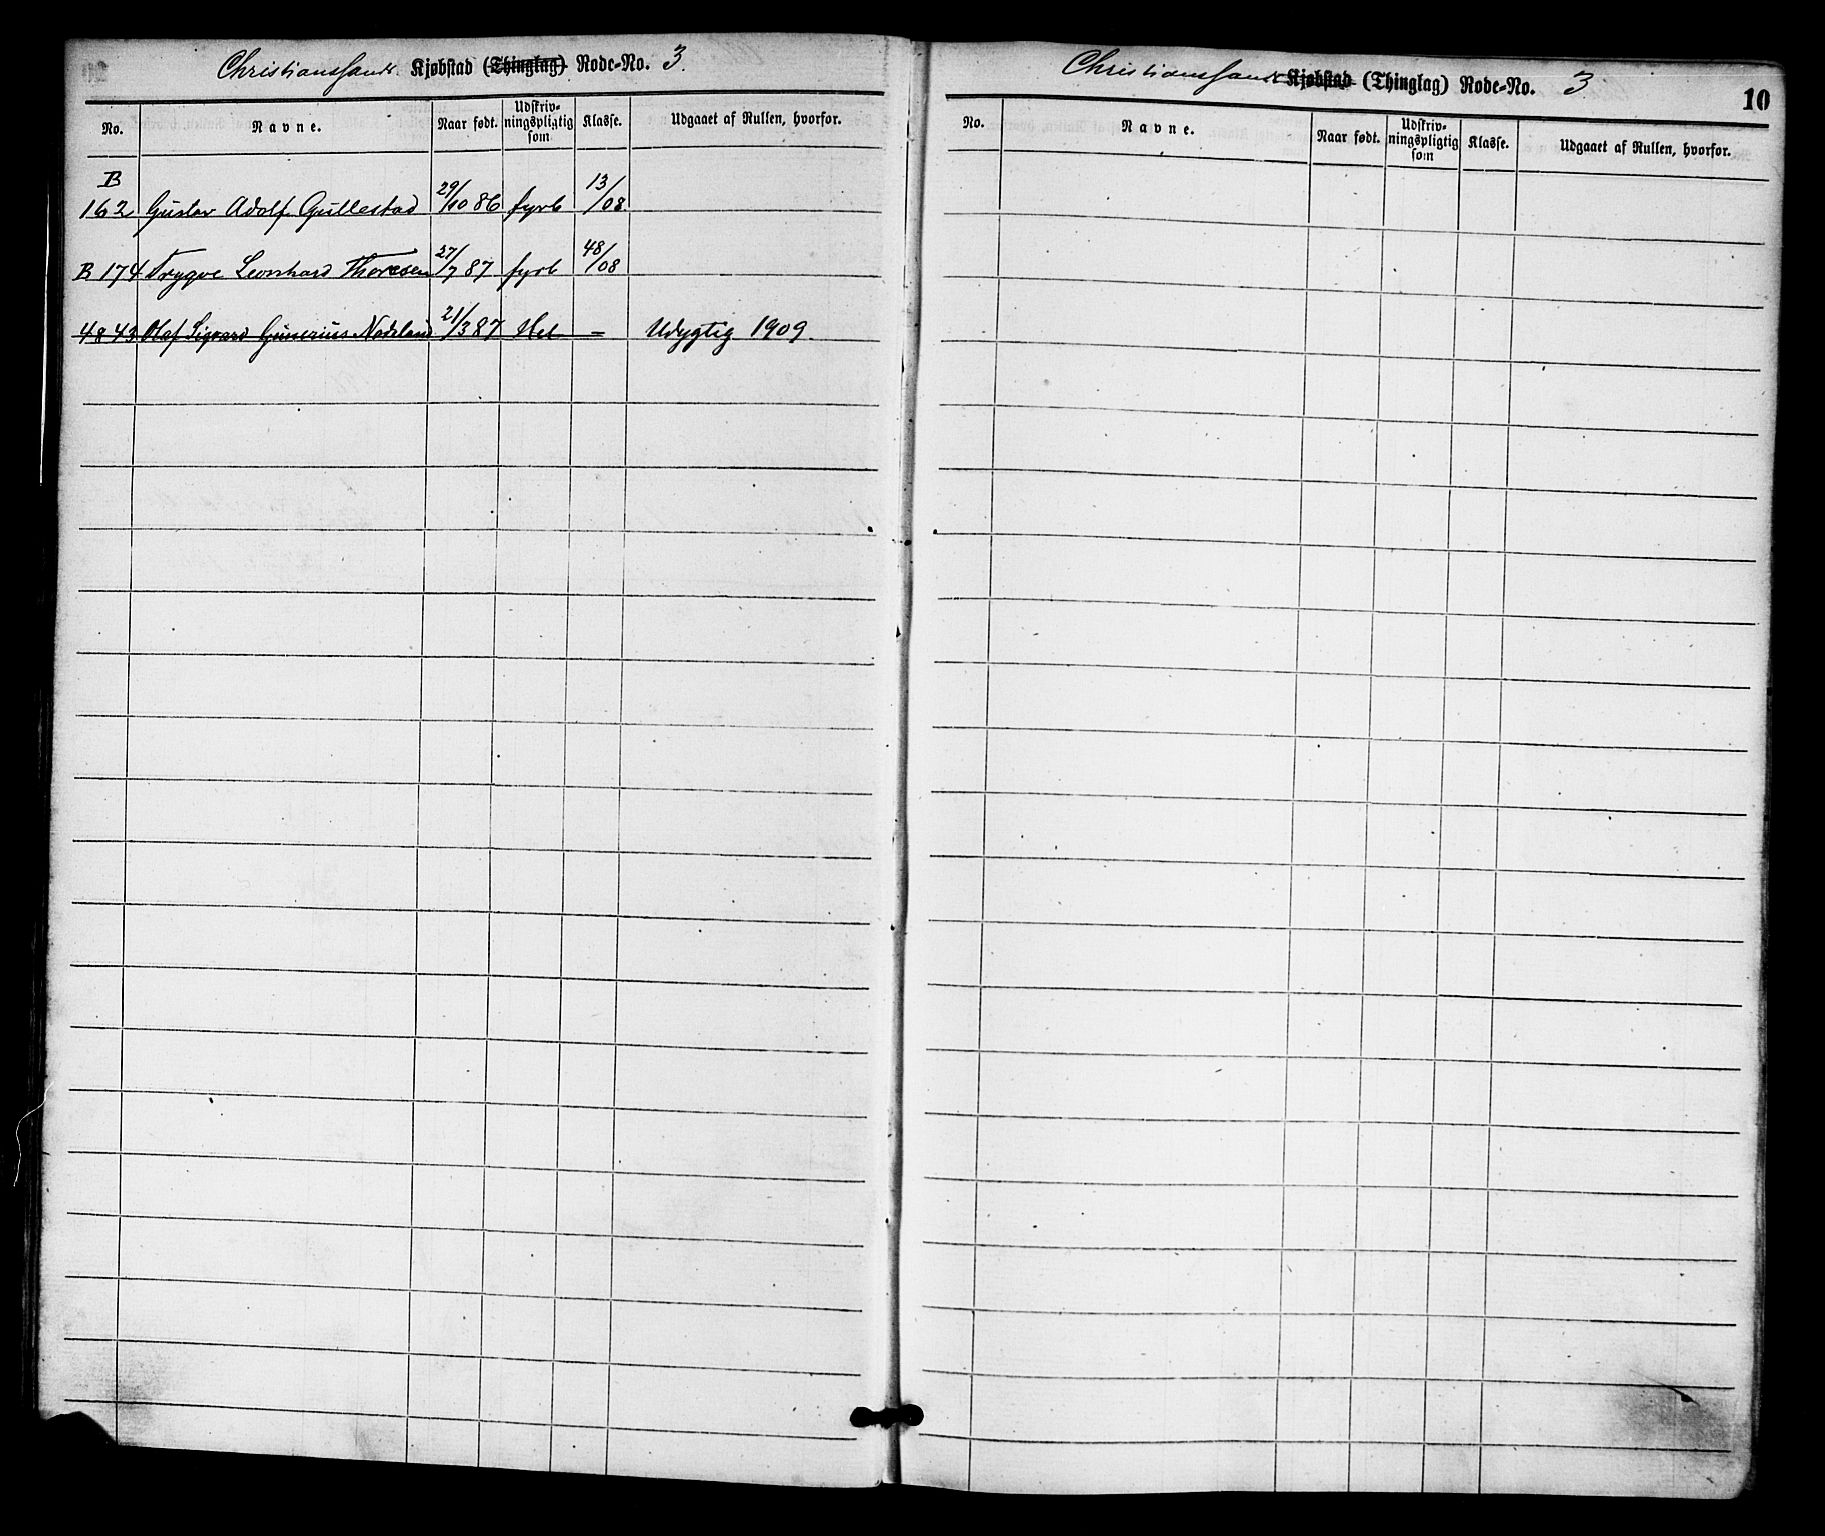 Christianssands Kjøbstad (Thinglag) Rode-No. 3.
No. Navne. Naar født. Udskriv-ningspligtig som Klasse. Udgaaet af Rullen, hvorfor.
B 162 Gustav Adolf Gullestad 29/10 86 fyrb 13/08
B 174 Trygve Leonhard Thoresen 27/7 87 fyrb 48/08
4843 Olaf Sigvard Gunerius Nodeland 21/3 87 Hel – Udygtig 1909.
Christianssands Kjøbstad (Thinglag) Rode-No. 3
10
No. Navne. Naar født. Udskriv-ningspligtig som Klasse. Udgaaet af Rullen, hvorfor.